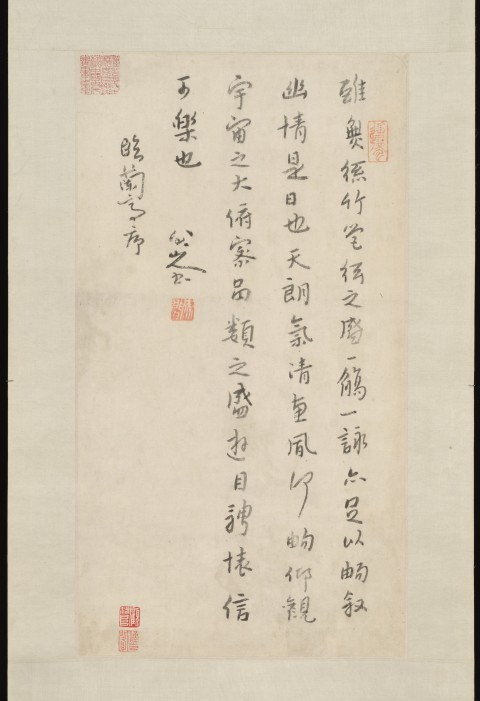 雖無絲竹管弦之盛一觴一詠亦足以暢敘
幽情是日也天朗氣清惠風和暢仰觀
宇宙之大俯察品類之盛遊目騁懷信
可樂也 八大山人書
臨蘭亭序